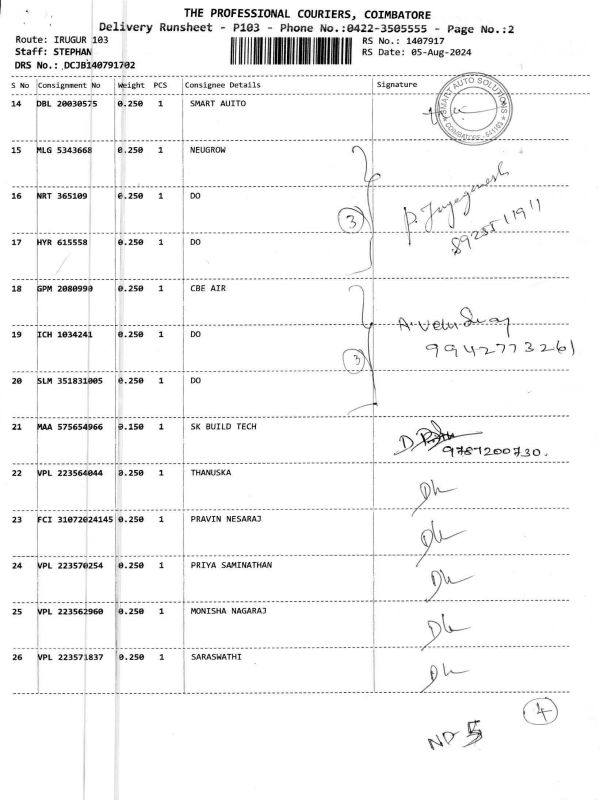 THE PROFESSIONAL COURIERS, COIMBATORE
Delivery Runsheet - P103 - Phone No.:0422-3505555 - Page No.:2
Route: IRUGUR 103
RS No.: 1407917
Staff: STEPHAN
RS Date: 05-Aug-2024
DRS No.: DCJB140791702
S No Consignment No Weight PCS Consignee Details Signature
14 DBL 20030575 0.250 1 SMART AUITO
SMART AUTO SOLUTIONS
COIMBATORE - 641103
15 MLG 5343668 0.250 1 NEUGROW
16 NRT 365109 0.250 1 DO
3
17 HYR 615558 0.250 1 DO
18 GPM 2080990 0.250 1 CBE AIR
19 ICH 1034241 0.250 1 DO
9942773261
3
20 SLM 351831005 0.250 1 DO
21 MAA 575654966 0.150 1 SK BUILD TECH
9787200730.
22 VPL 223564044 0.250 1 THANUSKA
23 FCI 31072024145 0.250 1 PRAVIN NESARAJ
24 VPL 223570254 0.250 1 PRIYA SAMINATHAN
25 VPL 223562960 0.250 1 MONISHA NAGARAJ
26 VPL 223571837 0.250 1 SARASWATHI
4
ND-5